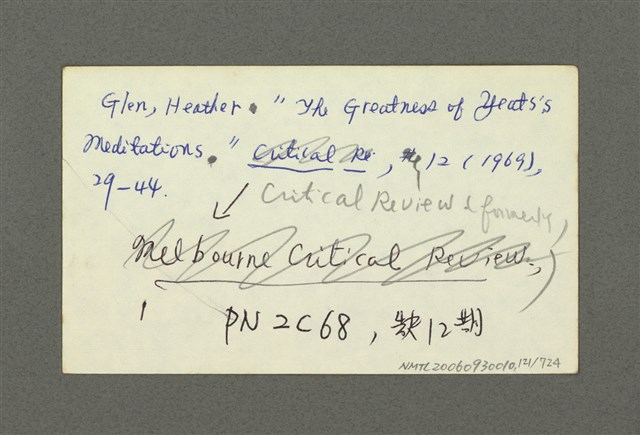 Glen, Heather. "The Greatness of Yeats's
Meditations." Critical Re., # 12 (1969),
29-44.
Critical Review & formerly
Melbourne Critical Review,)
PN 2C68, 缺12期
NMTL20060930010,121/724